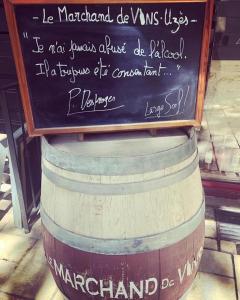 - Le Marchand de VINS - Uzès -
"Je n'ai jamais abusé de l'alcool.
Il a toujours été consentant..."
P. Desproges
Large Soif!
LE MARCHAND DE VINS